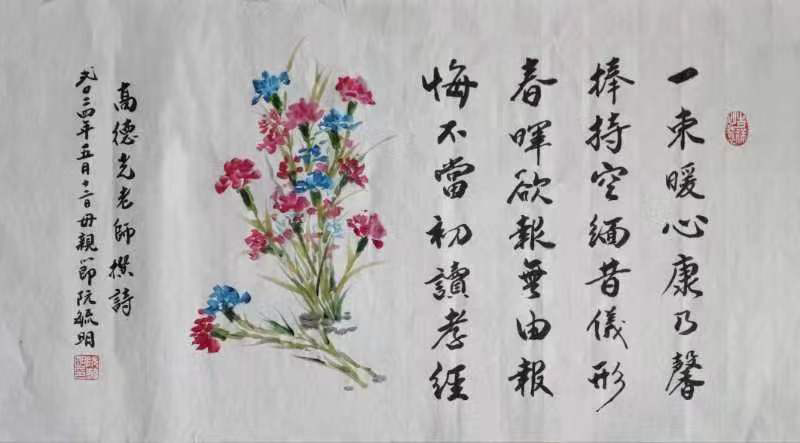 一束暖心康乃馨
捧持空緬昔儀形
春暉欲報無由報
悔不當初讀孝經
高德光老師撰詩
二〇二四年五月十二日母親節阮毓明